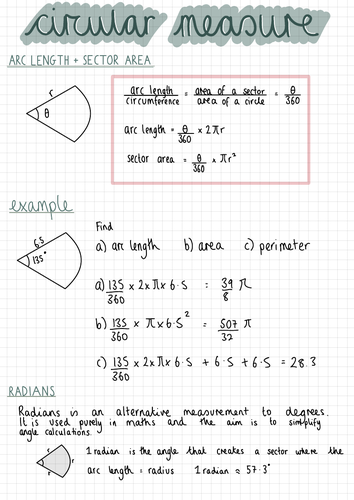 circular measure
ARC LENGTH + SECTOR AREA
r
θ
arc length / circumference = area of a sector / area of a circle = θ / 360
arc length = θ/360 × 2πr
sector area = θ/360 × πr²
example
6.5
135°
Find
a) arc length b) area c) perimeter
a) 135/360 × 2 × π × 6.5 = 39/8 π
b) 135/360 × π × 6.5² = 507/32 π
c) 135/360 × 2 × π × 6.5 + 6.5 + 6.5 = 28.3
RADIANS
Radians is an alternative measurement to degrees.
It is used purely in maths and the aim is to simplify
angle calculations.
r
r
r
1 radian is the angle that creates a sector where the
arc length = radius 1 radian ≈ 57.3°